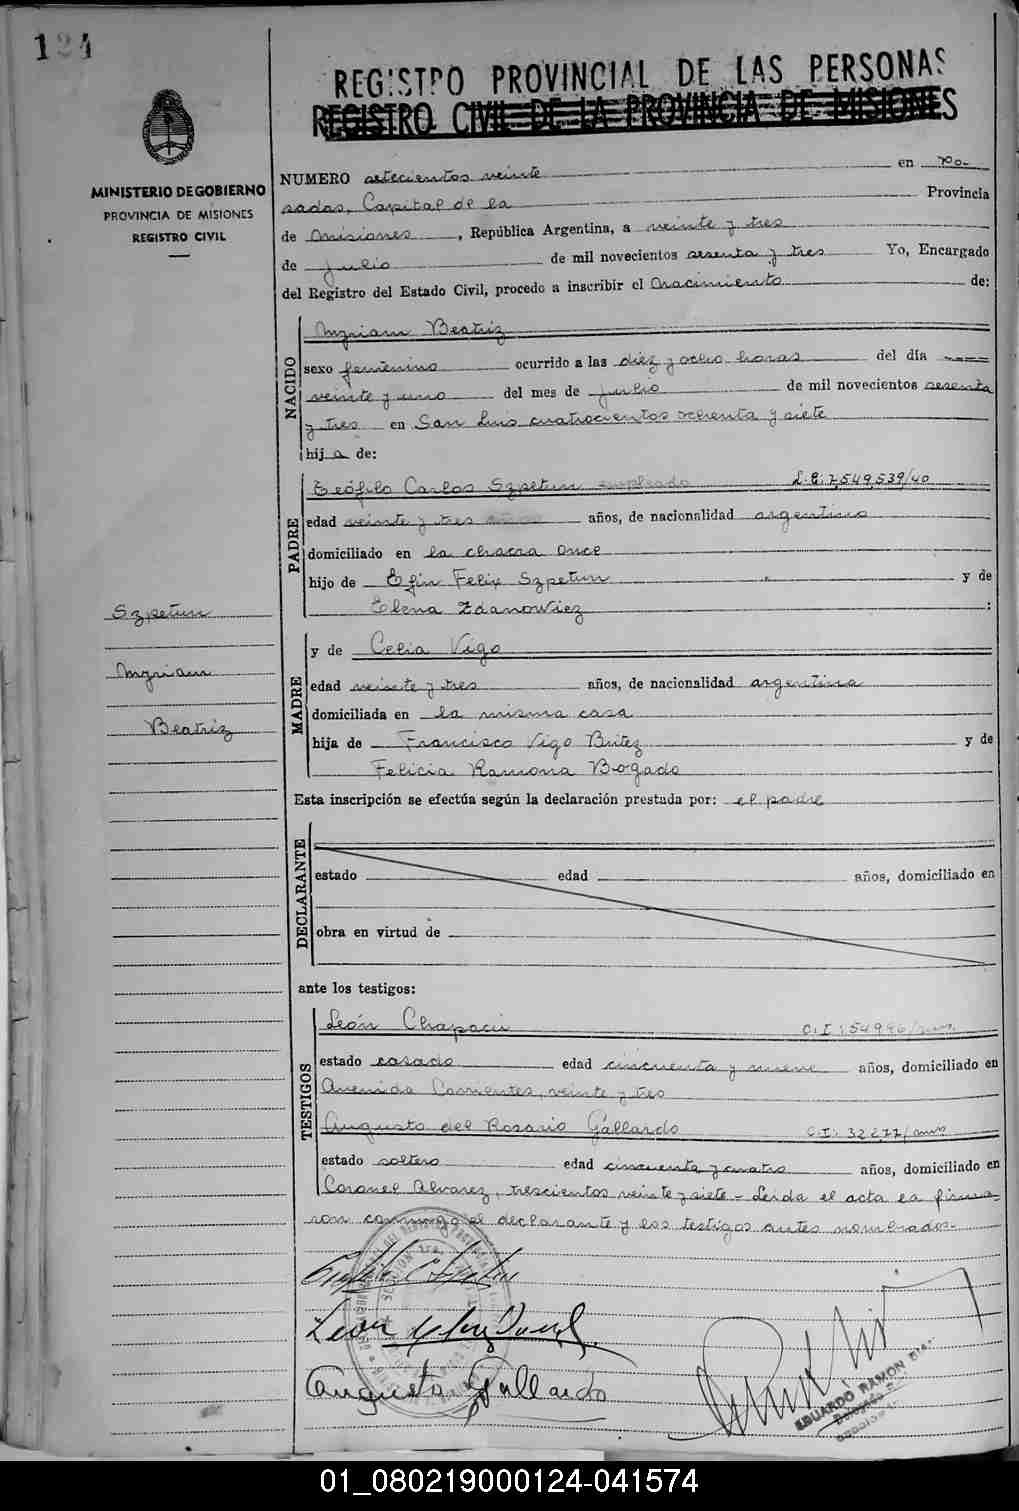 124
REGISTRO PROVINCIAL DE LAS PERSONAS
REGISTRO CIVIL DE LA PROVINCIA DE MISIONES
MINISTERIO DE GOBIERNO
PROVINCIA DE MISIONES
REGISTRO CIVIL
NUMERO setecientos veinte en Po-
sadas, Capital de la Provincia
de Misiones, República Argentina, a veinte y tres
de julio de mil novecientos sesenta y tres Yo, Encargado
del Registro del Estado Civil, procedo a inscribir el Nacimiento de:
NACIDO
Myriam Beatriz
sexo femenino ocurrido a las diez y ocho horas del día
veinte y uno del mes de julio de mil novecientos sesenta
y tres en San Luis cuatrocientos ochenta y siete
hija de:
PADRE
Teófilo Carlos Szpetun empleado L.E. 7,549,539/40
edad veinte y tres años, de nacionalidad argentino
domiciliado en la chacra once
hijo de Efin Felix Szpetun y de
Elena Zdanowiez :
Szpetun
Myriam
Beatriz
MADRE
y de Celia Vigo
edad veinte y tres años, de nacionalidad argentina
domiciliada en la misma casa
hija de Francisco Vigo Britez y de
Felicia Ramona Bogado
Esta inscripción se efectúa según la declaración prestada por: el padre
DECLARANTE
estado edad años, domiciliado en
obra en virtud de
ante los testigos:
TESTIGOS
León Chapacú C.I. 54996/mnes.
estado casado edad cincuenta y nueve años, domiciliado en
Avenida Corrientes, veinte y tres
Augusto del Rosario Gallardo C.I. 32277/mnes
estado soltero edad cincuenta y cuatro años, domiciliado en
Coronel Alvarez, trescientos veinte y siete - Leida el acta la firma-
ron conmigo el declarante y los testigos antes nombrados.-
Augusto Gallardo
EDUARDO RAMON DIAZ
01_080219000124-041574